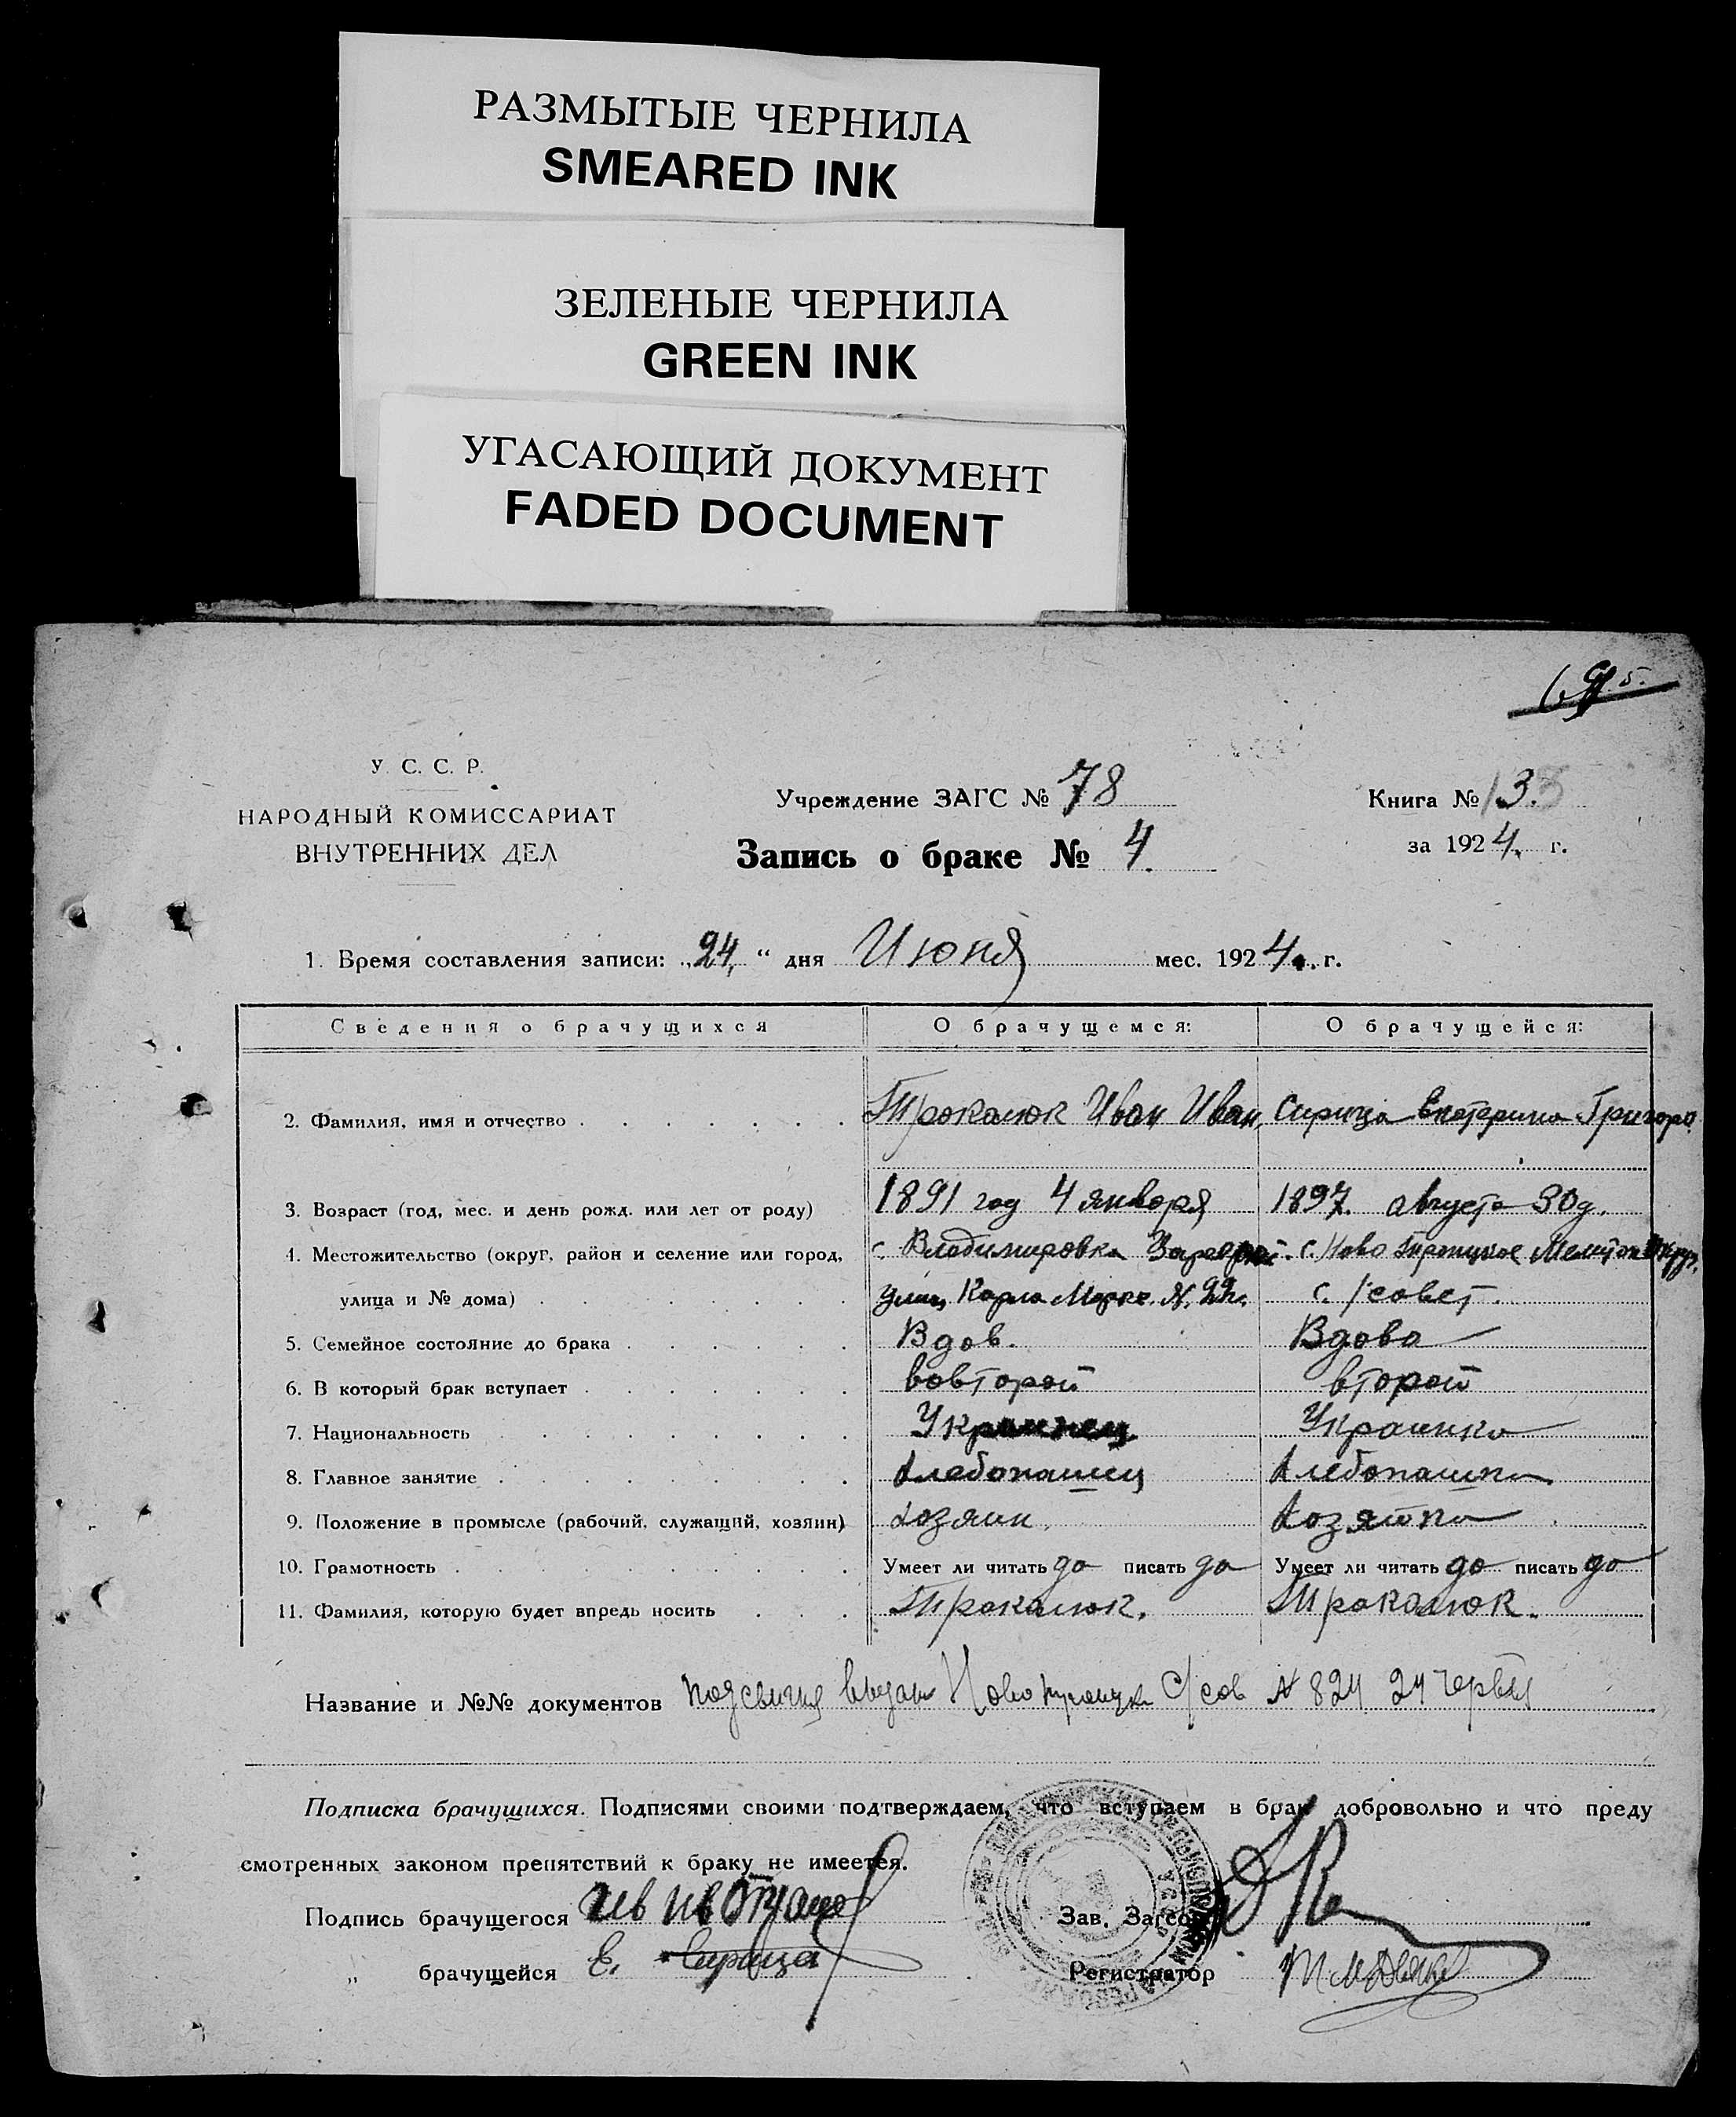 РАЗМЫТЫЕ ЧЕРНИЛА
SMEARED INK
ЗЕЛЕНЫЕ ЧЕРНИЛА
GREEN INK
УГАСАЮЩИЙ ДОКУМЕНТ
FADED DOCUMENT
У. С. С. Р.
НАРОДНЫЙ КОМИССАРИАТ
ВНУТРЕННИХ ДЕЛ
Учреждение ЗАГС № 78
Запись о браке № 4.
Книга № 13.
за 1924. г.
1. Время составления записи: „24„ “ дня Июня мес. 1924. г.
Сведения о брачущихся О брачущемся: О брачущейся:
2. Фамилия, имя и отчество Трокалюк Иван Иван, Сирица Екатерина Григоро
3. Возраст (год, мес. и день рожд. или лет от роду) 1891 год 4 января 1897. августа 30д.
4. Местожительство (округ, район и селение или город, с. Владимировка с. Ново Троицкое
улица и № дома) улиц Карла Маркс. № 22. с. /совет.
5. Семейное состояние до брака Вдов. Вдова
6. В который брак вступает вовторой второй
7. Национальность Украинец Украинка
8. Главное занятие Хлебопашец Хлебопашка
9. Положение в промысле (рабочий, служащий, хозяин) хозяин. хозяйка
10. Грамотность Умеет ли читать да писать да Умеет ли читать да писать да
11. Фамилия, которую будет впредь носить Трокалюк. Трокалюк.
Название и №№ документов Ново Троицк С/сов № 824 24 червня
Подписка брачущихся. Подписями своими подтверждаем, что вступаем в брак добровольно и что преду
смотренных законом препятствий к браку не имеется.
Подпись брачущегося Ив Ив
Зав. Загсом
„ брачущейся Е. Сирица
Регистратор